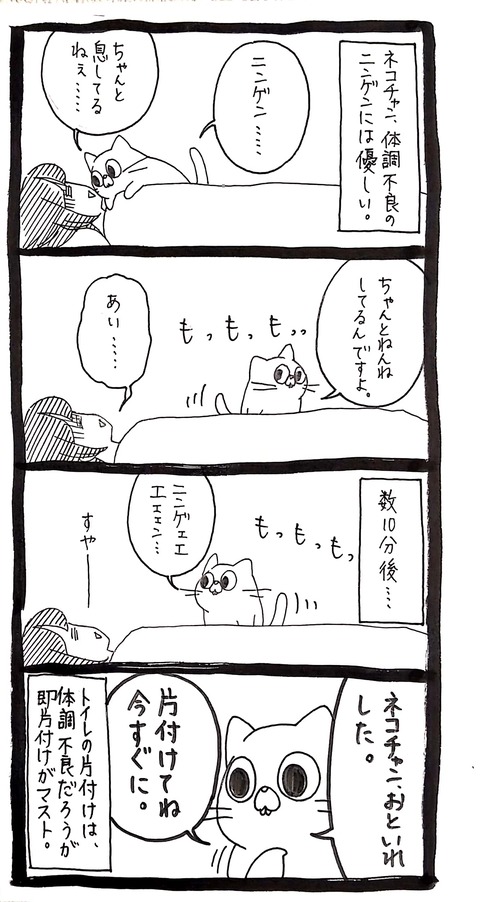 ネコチャン、体調不良の
ニンゲンには優しい。
ニンゲン……
ちゃんと
息してる
ねぇ……
ちゃんとねんね
してるんですよ。
もっもっもっ
あい……
数10分後…
もっもっもっ
ニンゲェエ
エェェン…
すやー
ネコチャン、おといれ
した。
片付けてね
今すぐに。
トイレの片付けは、
体調不良だろうが
即片付けがマスト。